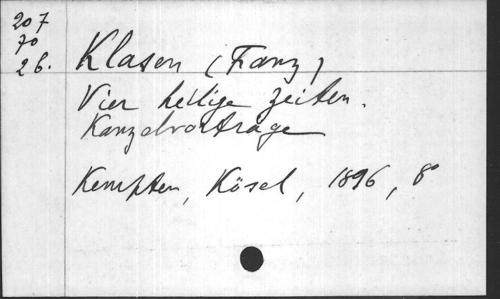 207
70
26.
Klasen (Franz)
Vier heilige Zeiten.
Kanzelvorträge
Kempten, Kösel, 1896, 8°